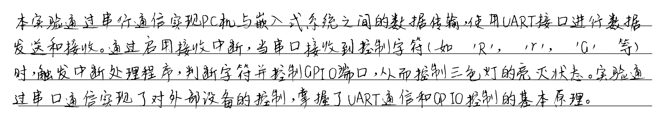 本实验通过串行通信实现PC机与嵌入式系统之间的数据传输,使用UART接口进行数据
发送和接收。通过启用接收中断,当串口接收到控制字符(如 'R', 'r', 'G' 等)
时,触发中断处理程序,判断字符并控制GPIO端口,从而控制三色灯的亮灭状态。实验通
过串口通信实现了对外部设备的控制,掌握了UART通信和GPIO控制的基本原理。